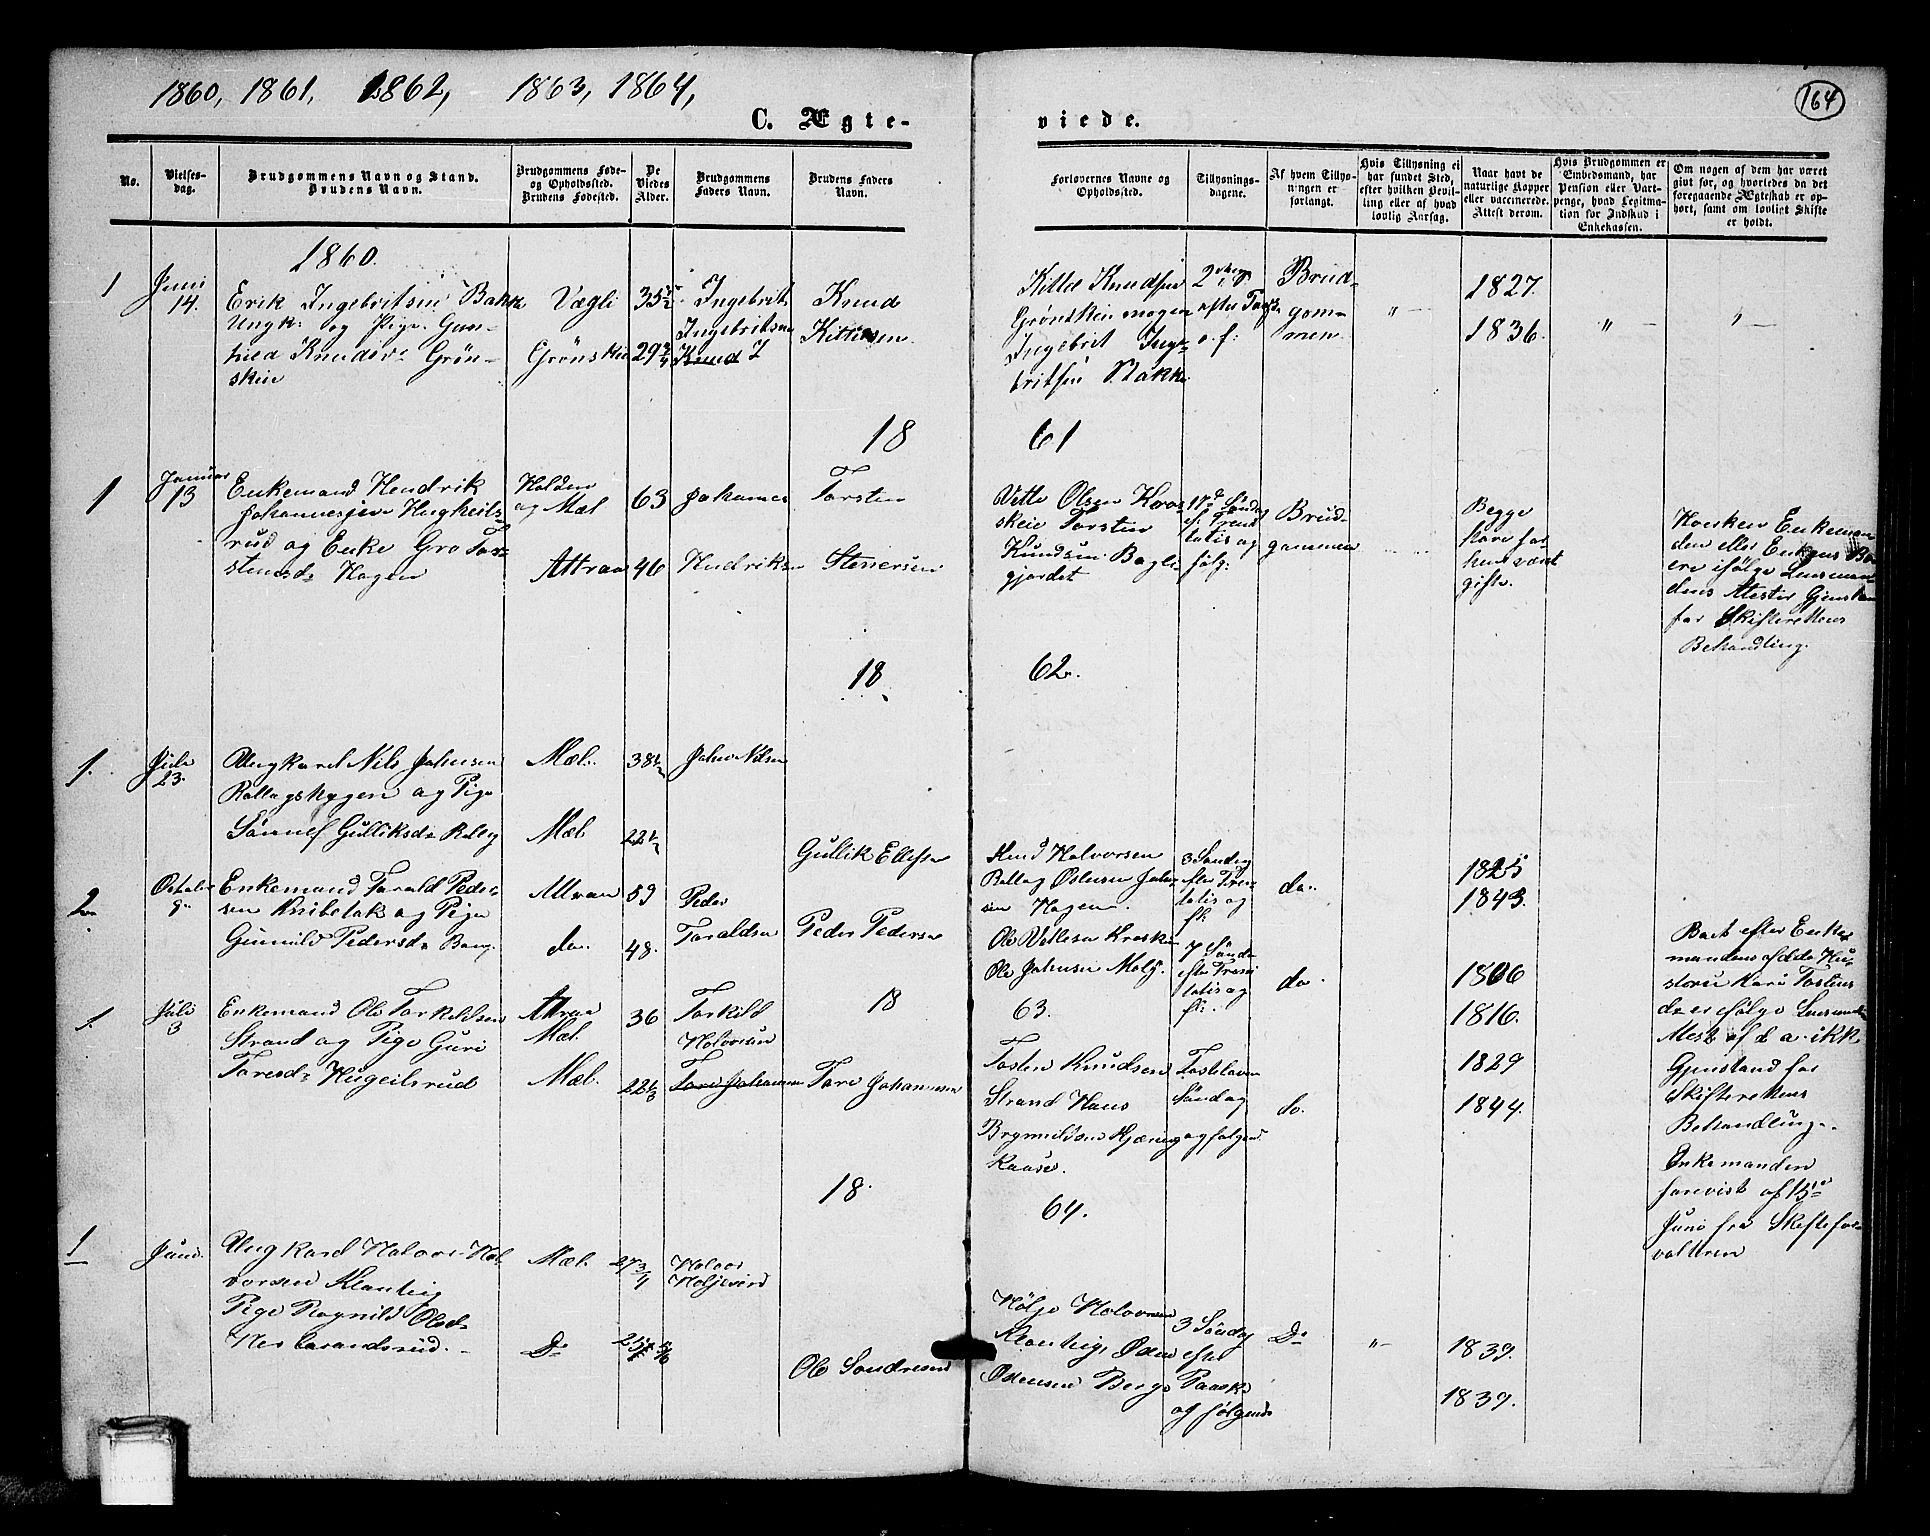 1860, 1861, 1862, 1863, 1864,
164
C. Ægte-
viede.
No.
Vielses-
dag.
Brudgommens Navn og Stand.
Brudens Navn.
Brudgommens Føde-
og Opholdssted.
Brudens Fødested.
De
Viedes
Alder.
Brudgommens
Faders Navn.
Brudens Faders
Navn.
Forlovernes Navne og
Opholdssted.
Tillysnings-
dagene.
Af hvem Tillys-
ningen er
forlangt.
Hvis Tillysning ei
har fundet Sted,
efter hvilken Bevil-
ling eller af hvad
lovlig Aarsag.
Naar havt de
naturlige Kopper
eller vaccinerede.
Attest derom.
Hvis Brudgommen er
Embedsmand, har
Pension eller Vart-
penge, hvad Legitima-
tion for Indskud i
Enkekassen.
Om nogen af dem har været
gift før, og hvorledes da det
foregaaende Ægteskab er op-
hørt, samt om lovligt Skifte
er holdt.
1860.
1
Juni
14.
Erik Ingebritsen Bakke
Ungk. og Pige Gun-
hild Knudsd. Grøn-
skeie
Vægli
Grønskeie
35½
29¾
Ingebrit
Ingebritsen
Knud I
Knud
Kittilsen.
Kittil Knudsen
Grønskeimogen
Ingebrit Inge-
britsen Bakke
Brud-
gom-
men
1827.
1836.
18
61
1
Januar
13
Enkemand Hendrik
Johannesen Hugheils-
rud og Enke Gro Tor-
stensd. Hagen
Holden
og Mæl
Attraa
63
46
Johannes
Hendriksen
Torsten
Stenersen
Vetle Olsen Kros-
skeie Torstin
Knudsen Bagli-
gjordet
17de Søndag
ef: Trini
tatis og
følg:
Brud-
gommen
Begge
have før
hen været
gifte.
Hverken Enkeman
den eller Enkens Bo
ere ifølge Lensman-
dens Attester Gjenstand
for Skifterettens
Behandling.
18
62.
1.
Juli
23.
Ungkarl Nils Johnsen
Rollagshagen og Pige
Sønnef Gulliksd. Rollag
Mæl.
Mæl
38½
22½
John Nilsen
Gullik Ellefsen
Knud Halvorsen
Rollag Østen John-
sen Hagen.
3 Søndag
efter Trini-
tatis og
fl:
do.
1825
1843.
2
October
9.
Enkemand Torald Peder-
sen Knibetak og Pige
Gunnild Pedersd. Berg
Attraa
do.
59
48.
Peder
Toraldsen
Peder Pedersen
Ole Vetlesen Kroskeie
Ole Johnsen Mæl.
7 Sønd.
efter Trini
tatis og
fl:
do.
1806
1816.
Boet efter Enke-
mandens afdøde Hu-
stru Kari Tostens
d. er ifølge Lensmands
Attest af d. a. ikke
Gjenstand for
Skifterettens
Behandling.
18
63.
1.
Juli
3
Enkemand Ole Torkildsen
Strand og Pige Guri
Toresd. Hugeilsrud
Attraa
Mæl.
Mæl.
36
22½
Torkild
Halvorsen
Tore Johannesen
Tore Johannesen
Tosten Knudsen
Strand Hans
Brynnildsen Kjæring
kaase.
Fastelavn
Søndag
og følgend.
do.
1829
1844.
Enkemanden
forevist af 13de
Juni fra Skiftefor-
valteren
18.
64.
1
Juni
Ungkarl Halvor Hal-
vorsen
Pige Ragnild Olsd.
Mæl.
Do
27¾
Halvor
Ole Sondresen
Hølje Halvorsen
Østen
Østensen Berge
3 Søndag
efter
Paaske
og følgende
Do
1839.
1839.